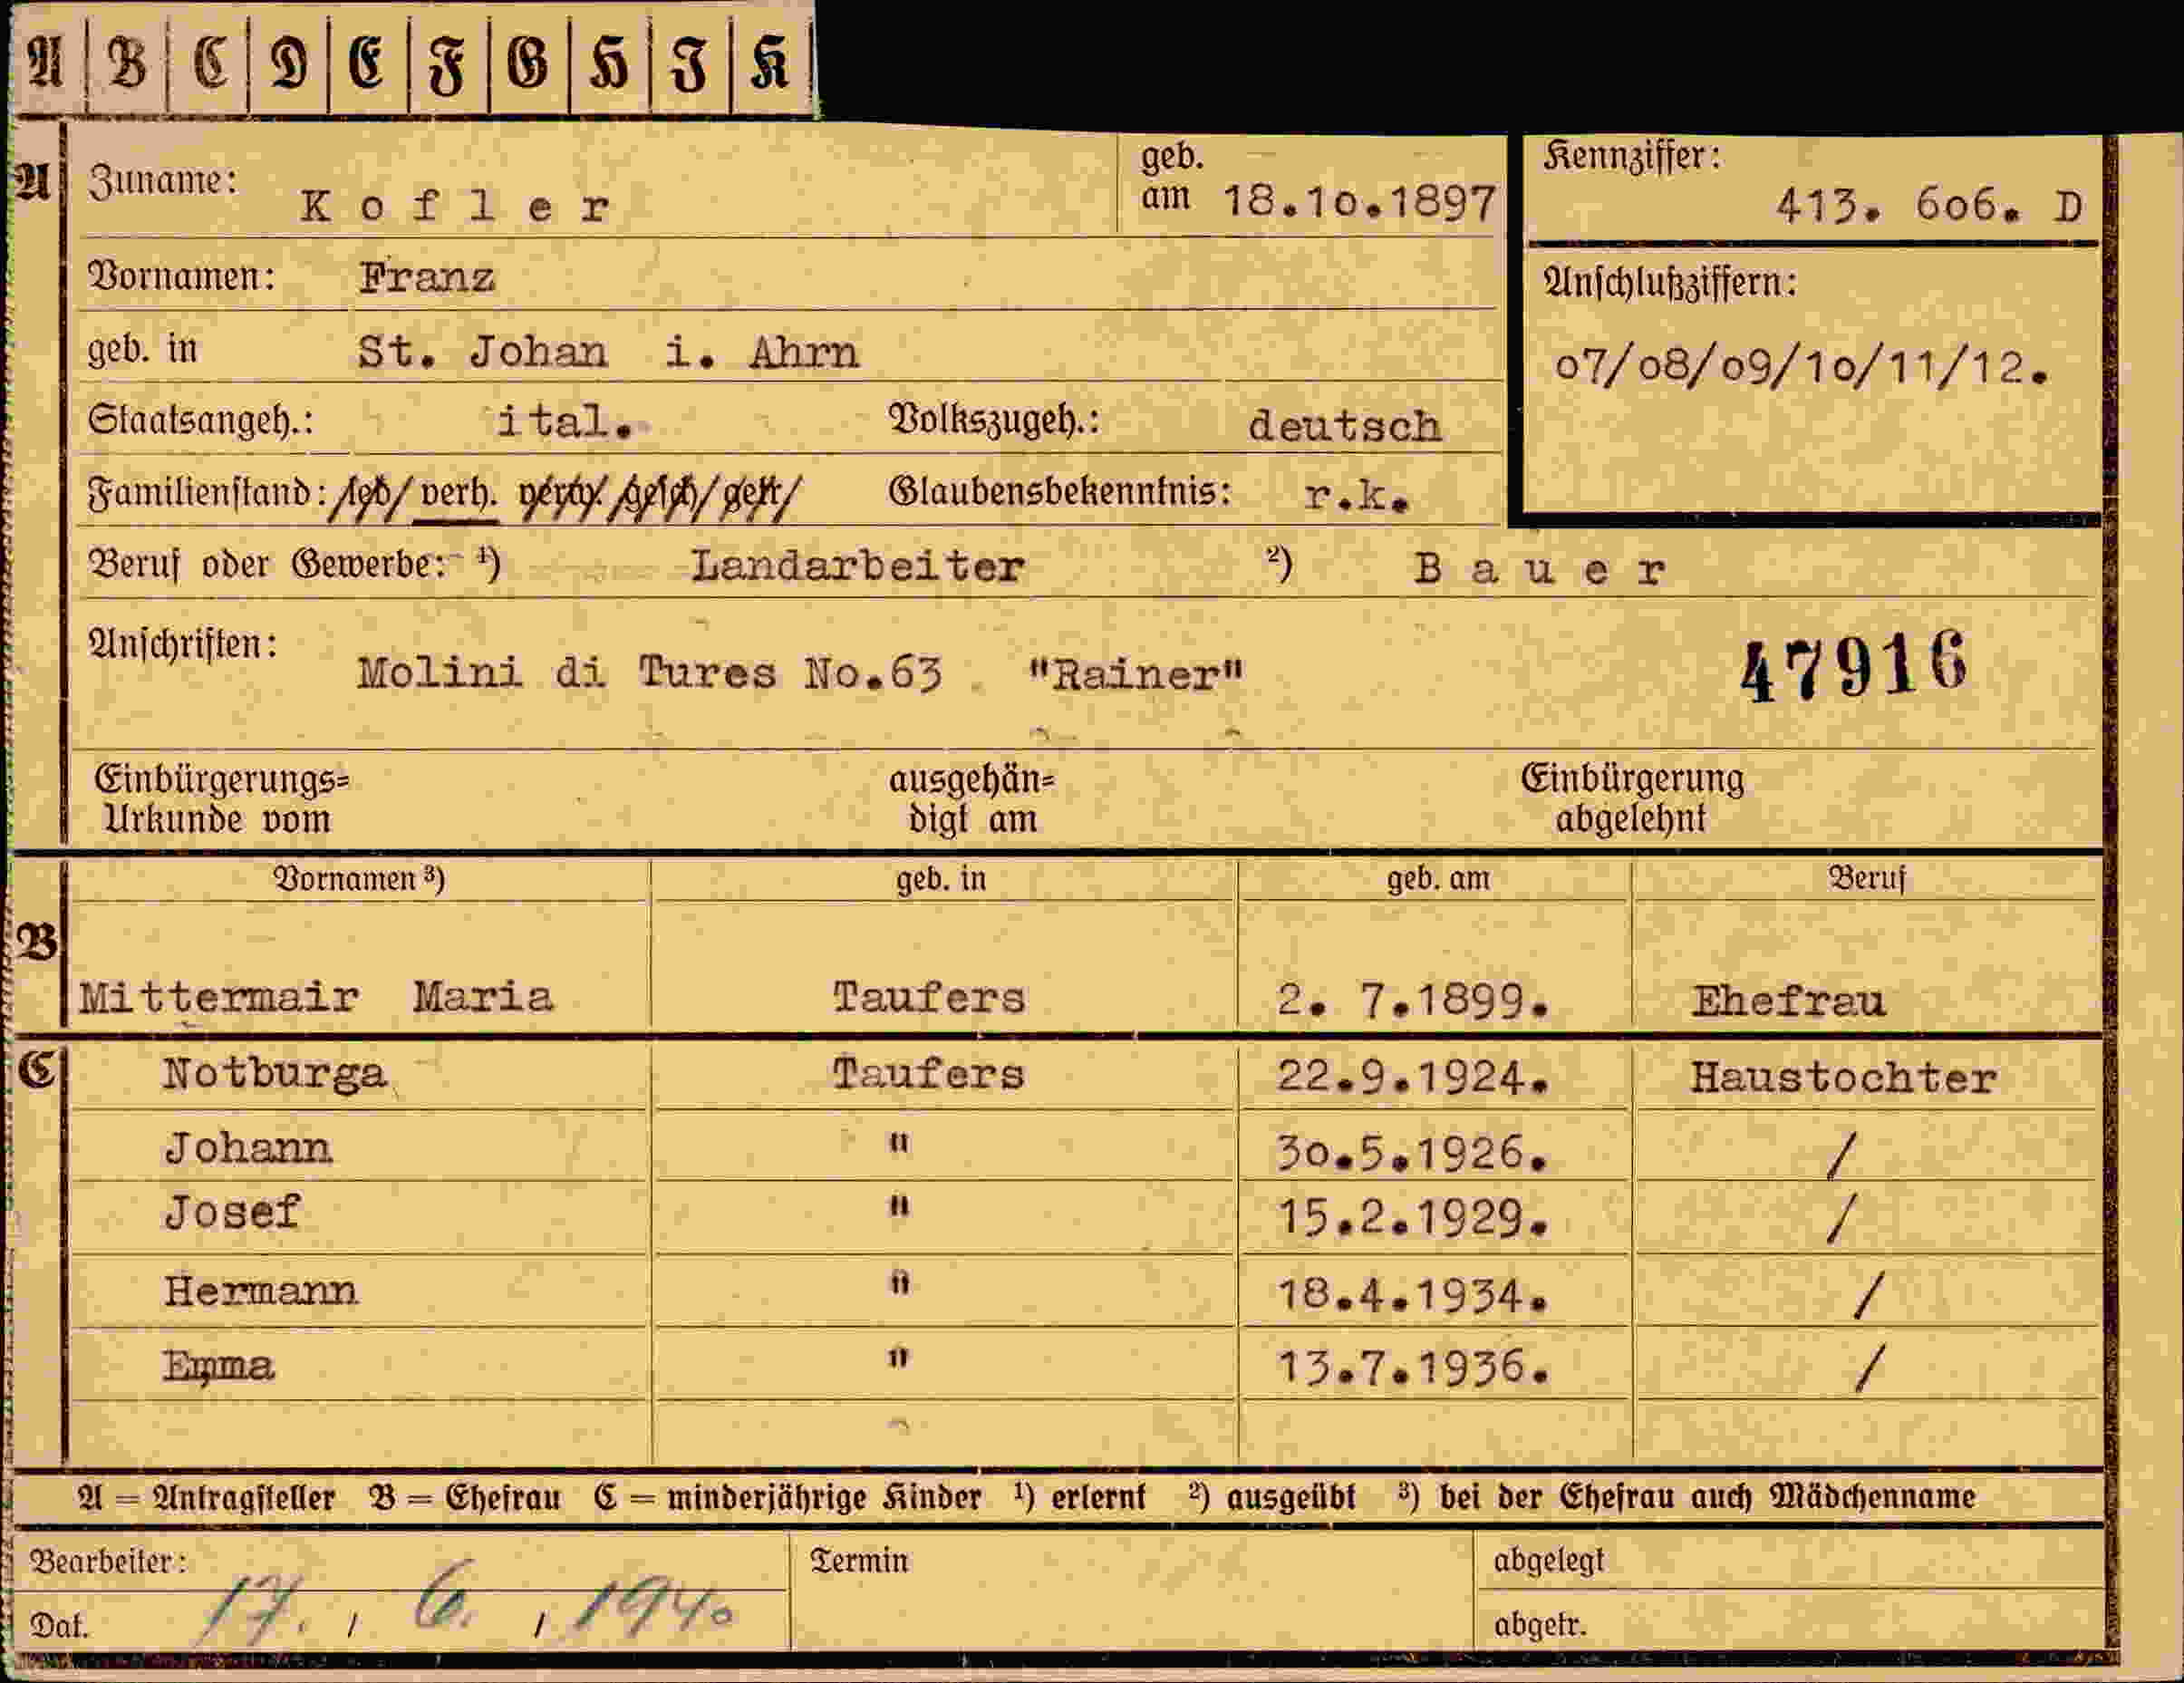 A B C D E F G H I K
A Zuname: Kofler geb. am 18.10.1897 Kennziffer: 413. 606. D
Vornamen: Franz
Anschlußziffern:
geb. in St. Johan i. Ahrn
07/08/09/10/11/12.
Staatsangeh.: ital. Volkszugeh.: deutsch
Familienstand: led/ verh. verw. /gesch/ getr/ Glaubensbekenntnis: r.k.
Beruf oder Gewerbe: ¹) Landarbeiter ²) Bauer
Anschriften: Molini di Tures No.63 "Rainer" 47916
Einbürgerungs= ausgehän= Einbürgerung
Urkunde vom digt am abgelehnt
Vornamen ³) geb. in geb. am Beruf
B
Mittermair Maria Taufers 2. 7.1899. Ehefrau
C Notburga Taufers 22.9.1924. Haustochter
Johann " 30.5.1926. /
Josef " 15.2.1929. /
Hermann " 18.4.1934. /
Emma " 13.7.1936. /
A = Antragsteller B = Ehefrau C = minderjährige Kinder ¹) erlernt ²) ausgeübt ³) bei der Ehefrau auch Mädchenname
Bearbeiter: Termin abgelegt
Dat. 17. / 6. / 1940 abgetr.